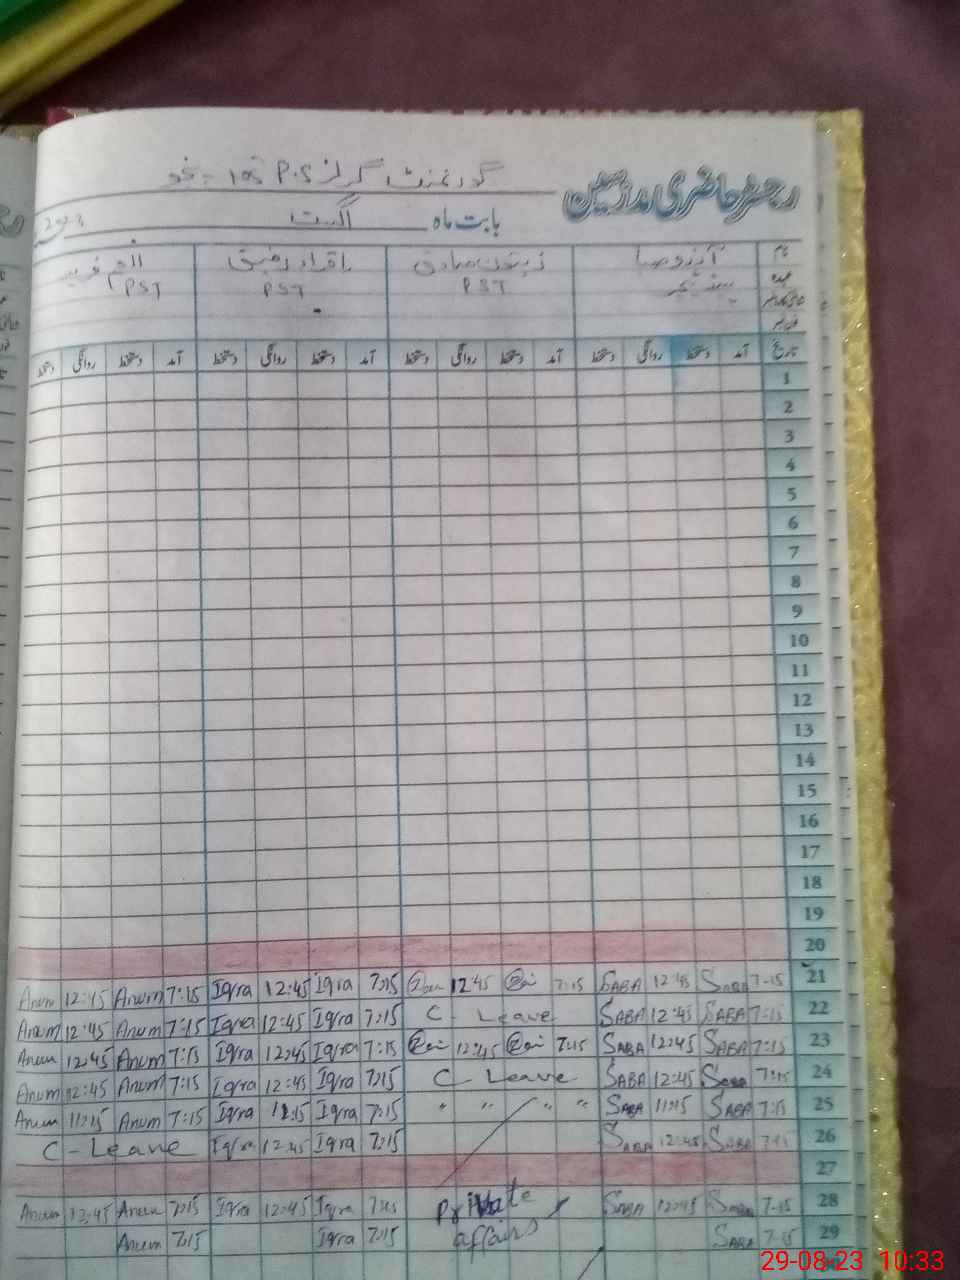 رجسٹر حاضری مدرسین
گورنمنٹ گرلز P.S
بابت ماہ اگست 2023
نام آنزہ صبا زیتون صادق اقراء رفیق انعم فرید
عہدہ PST PST PST
تاریخ آمد دستخط روانگی دستخط آمد دستخط روانگی دستخط آمد دستخط روانگی دستخط آمد دستخط روانگی دستخط
1
2
3
4
5
6
7
8
9
10
11
12
13
14
15
16
17
18
19
20
Anum 12:45 Anum 7:15 Iqra 12:45 Iqra 7:15 12:45 7:15 SABA 12:45 SABA 7-15 21
Anum 12:45 Anum 7:15 Iqra 12:45 Iqra 7:15 C- Leave SABA 12:45 SABA 7:15 22
Anum 12:45 Anum 7:15 Iqra 12:45 Iqra 7:15 12:45 7:15 SABA 12:45 SABA 7:15 23
Anum 12:45 Anum 7:15 Iqra 12:45 Iqra 7:15 C Leave SABA 12:45 SABA 7:15 24
Anum 11:15 Anum 7:15 Iqra 11:15 Iqra 7:15 " " " " SABA 11:15 SABA 7:15 25
C - Leave Iqra 12:45 Iqra 7:15 SABA 12:45 SABA 7:15 26
27
Anum 12:45 Anum 7:15 Iqra 12:45 Iqra 7:15 Private SABA 12:45 SABA 7-15 28
Anum 7:15 Iqra 7:15 affairs SABA 7-15 29
29-08-23 10:33